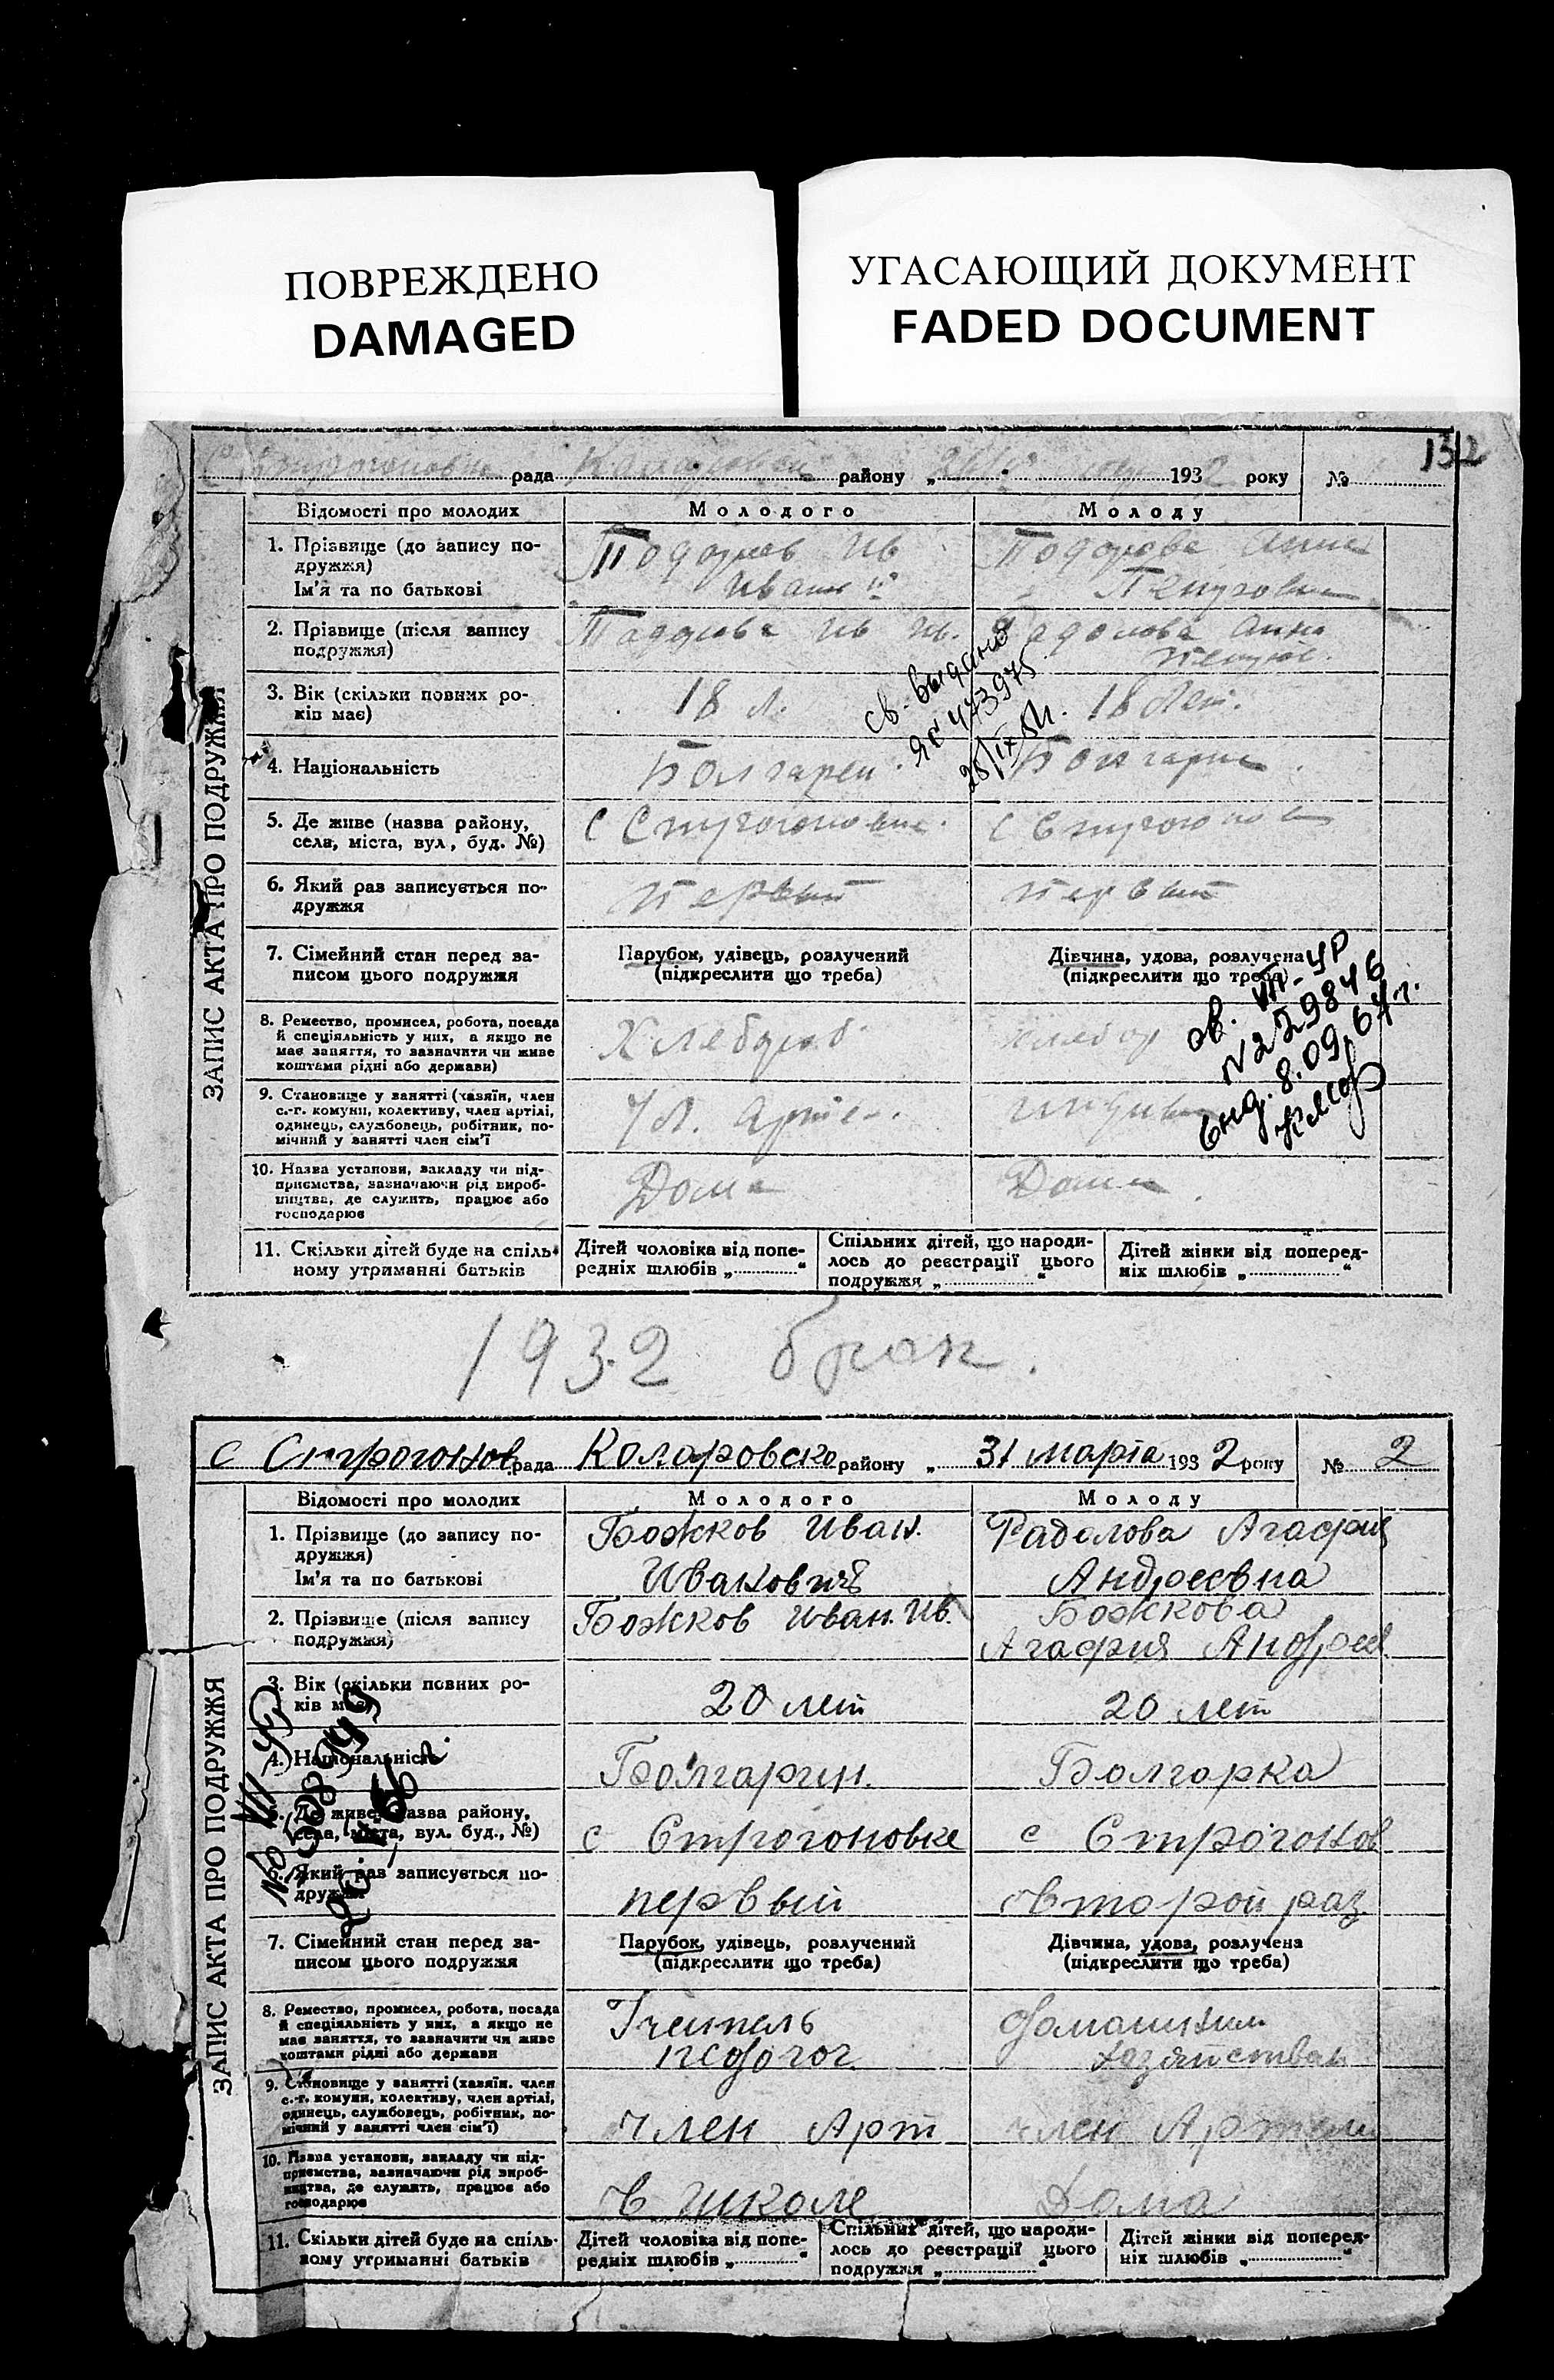 ПОВРЕЖДЕНО
DAMAGED
УГАСАЮЩИЙ ДОКУМЕНТ
FADED DOCUMENT
132
рада району „ 1932 року №
ЗАПИС АКТА ПРО ПОДРУЖЖЯ
Відомості про молодих Молодого Молоду
1. Прізвище (до запису по-
дружжя)
Ім'я та по батькові
Ив
Анна
2. Прізвище (після запису
подружжя)
Ив Ив. Анна
3. Вік (скільки повних ро-
ків має)
18 л. 18 лет.
св. выдано
28/IX 51г.
4. Національність
Болгарин
5. Де живе (назва району,
села, міста, вул, буд. №)
с с
6. Який раз записується по-
дружжя
первый первый
7. Сімейний стан перед за-
писом цього подружжя
Парубок, удівець, розлучений
(підкреслити що треба)
Дівчина, удова, розлучена
(підкреслити що треба)
8. Ремество, промисел, робота, посада
й спеціяльність у них, а якщо не
має заняття, то зазначити чи живе
коштами рідні або держави)
Хлебороб хлебор
9. Становище у занятті (хазяїн, член
с.-г. комуни, колективу, член артілі,
одинець, службовець, робітник, по-
мічний у занятті член сім'ї
Чл. Арте
св. VII-УР
N 229846
8.09.64г.
10. Назва установи, закладу чи під-
приємства, зазначаючи рід вироб-
ництва, де служить, працює або
господарює
Дома Дома
11. Скільки дітей буде на спіль-
ному утриманні батьків
Дітей чоловіка від попе-
редніх шлюбів „ “
Спільних дітей, що народи-
лось до реєстрації цього
подружжя „ “
Дітей жінки від поперед-
ніх шлюбів „ “
1932 брак.
с Строгонов рада Коларовско району „ 31 марта 1932 року № 2
ЗАПИС АКТА ПРО ПОДРУЖЖЯ
Відомості про молодих Молодого Молоду
1. Прізвище (до запису по-
дружжя)
Ім'я та по батькові
Божков Иван.
Иванович
Радолова Агафия
Андреевна
2. Прізвище (після запису
подружжя)
Божков Иван. Ив.
Божкова
Агафия Андрея
3. Вік (скільки повних ро-
ків має)
20 лет 20 лет
4. Національність
Болгарин. Болгорка
5. Де живе (назва району,
села, міста, вул. буд., №)
с Строгоновке с Строгонов
6. Який раз записується по-
дружжя
первый второй раз
7. Сімейний стан перед за-
писом цього подружжя
Парубок, удівець, розлучений
(підкреслити що треба)
Дівчина, удова, розлучена
(підкреслити що треба)
8. Ремество, промисел, робота, посада
й спеціяльність у них, а якщо не
має заняття, то зазначити чи живе
коштами рідні або держави
Учитель
педогог
домашним
хозяйством
9. Становище у занятті (хазяїн. член
с.-г. комуни, колективу, член артілі,
одинець, службовець, робітник, по-
мічний у занятті член сім'ї)
член Арт член Артели
10. Назва установи, закладу чи під-
приємства, зазначаючи рід вироб-
ництва, де служить, працює або
господарює
в школе Дома
11. Скільки дітей буде на спіль-
ному утриманні батьків
Дітей чоловіка від попе-
редніх шлюбів „ “
Спільних дітей, що народи-
лось до реєстрації цього
подружжя „ “
Дітей жінки від поперед-
ніх шлюбів „ “